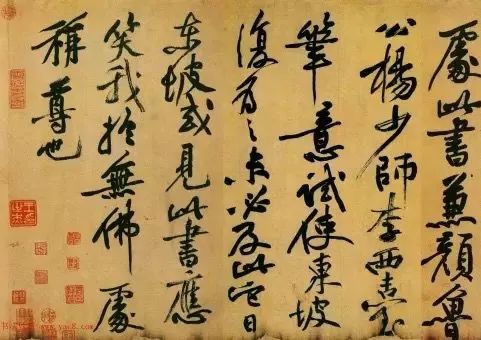 處此書兼顏魯
公楊少師李西臺
筆意試使東坡
復為之未必及此它日
東坡或見此書應
笑我於無佛處
稱尊也
www.yac8.com